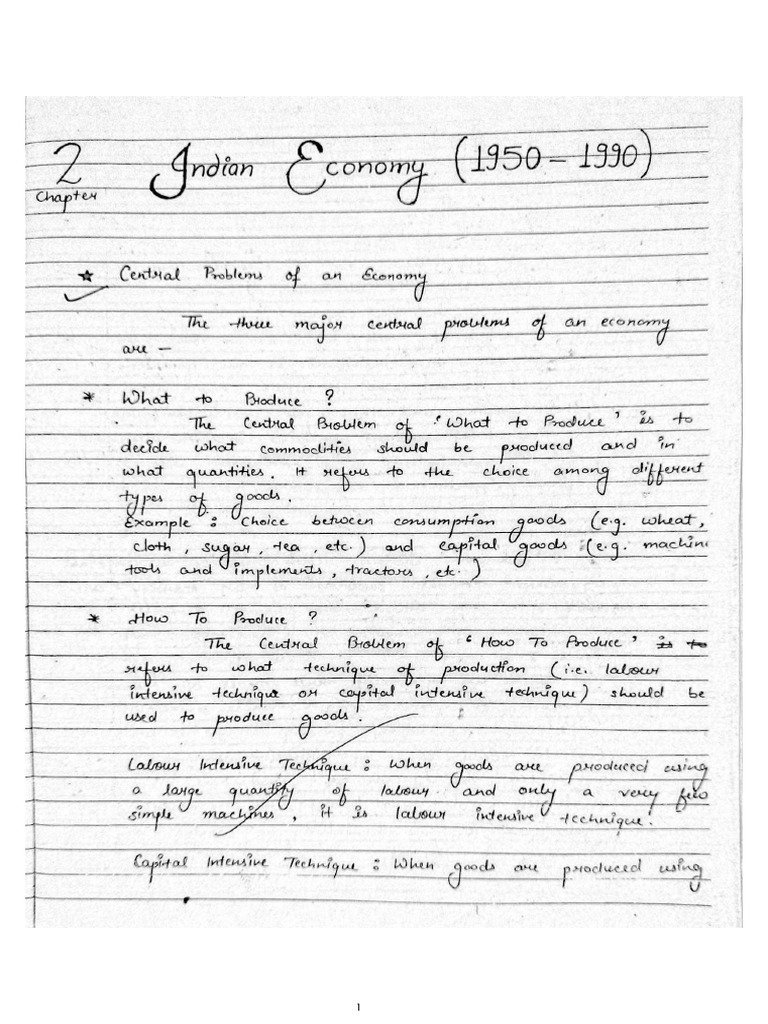 2 Indian Economy (1950 - 1990)
Chapter
☆ Central Problems of an Economy
The three major central problems of an economy
are -
* What to Produce ?
The Central Problem of 'What to Produce' is to
decide what commodities should be produced and in
what quantities. It refers to the choice among different
types of goods.
Example : Choice between consumption goods (e.g. wheat,
cloth, sugar, tea, etc.) and capital goods (e.g. machin
tools and implements, tractors, etc.)
* How To Produce ?
The Central Problem of 'How To Produce' is to
refers to what technique of production (i.e. labour
intensive technique or capital intensive technique) should be
used to produce goods.
Labour Intensive Technique : When goods are produced using
a large quantity of labour and only a very few
simple machines, it is labour intensive technique.
Capital Intensive Technique : When goods are produced using
1